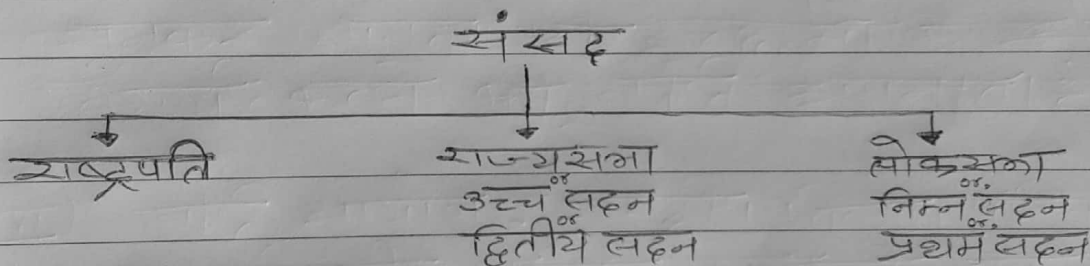 संसद
राष्ट्रपति
राज्यसभा
or
उच्च सदन
or
द्वितीय सदन
लोकसभा
or,
निम्न सदन
or,
प्रथम सदन